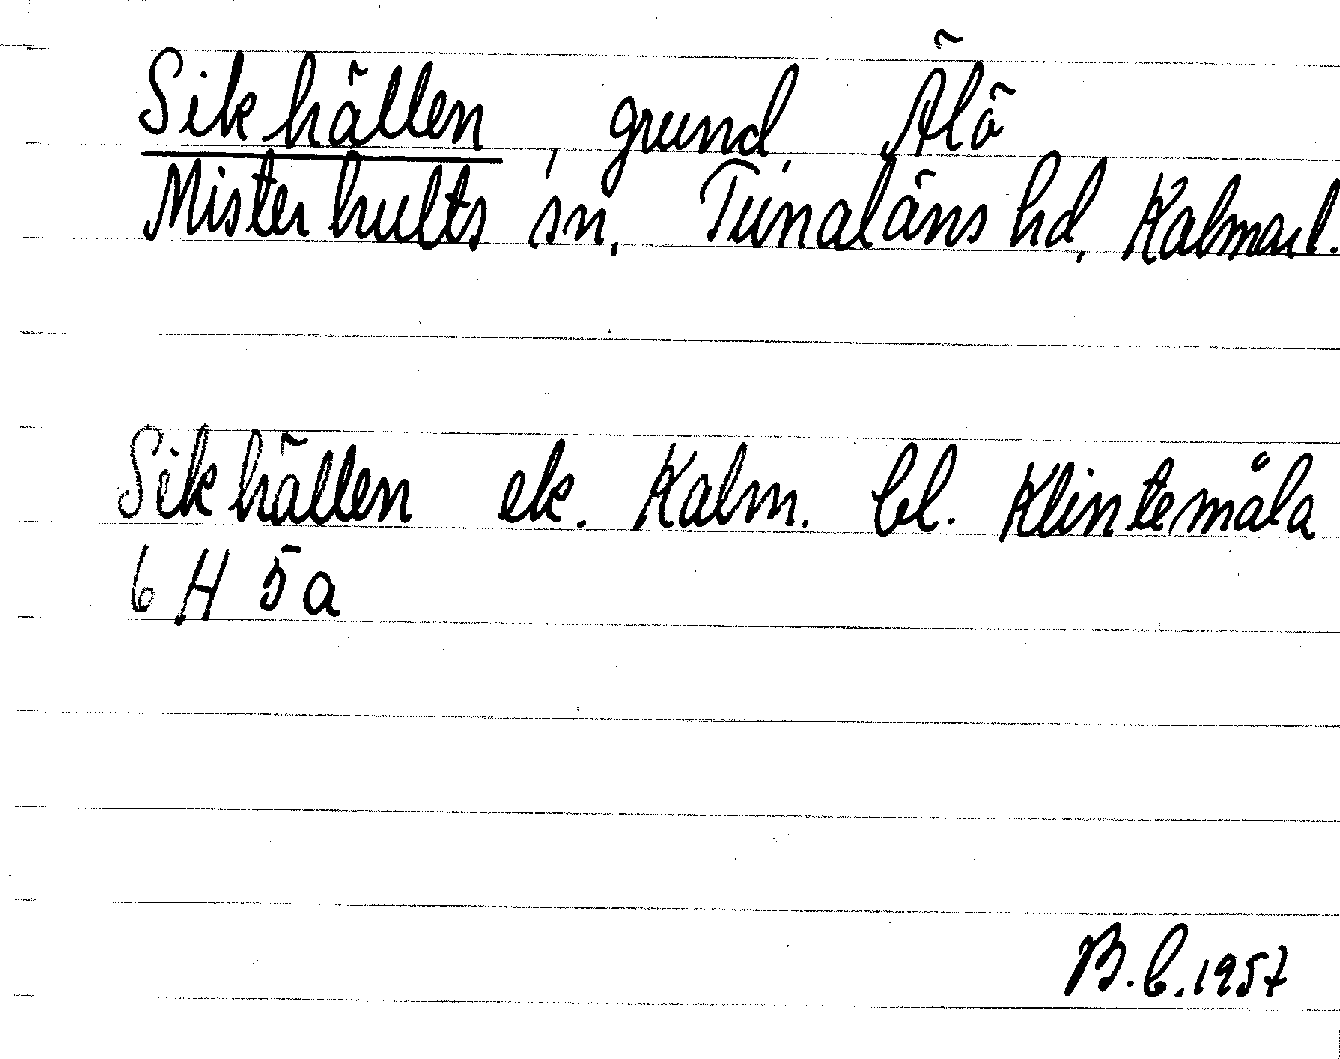 Sikhällen, grund, Älö
Misterhults sn. Tunaläns hd. Kalmarl.
Sikhällen ek. Kalm. bl. Klintemåla
6 H 5a
B.C. 1957